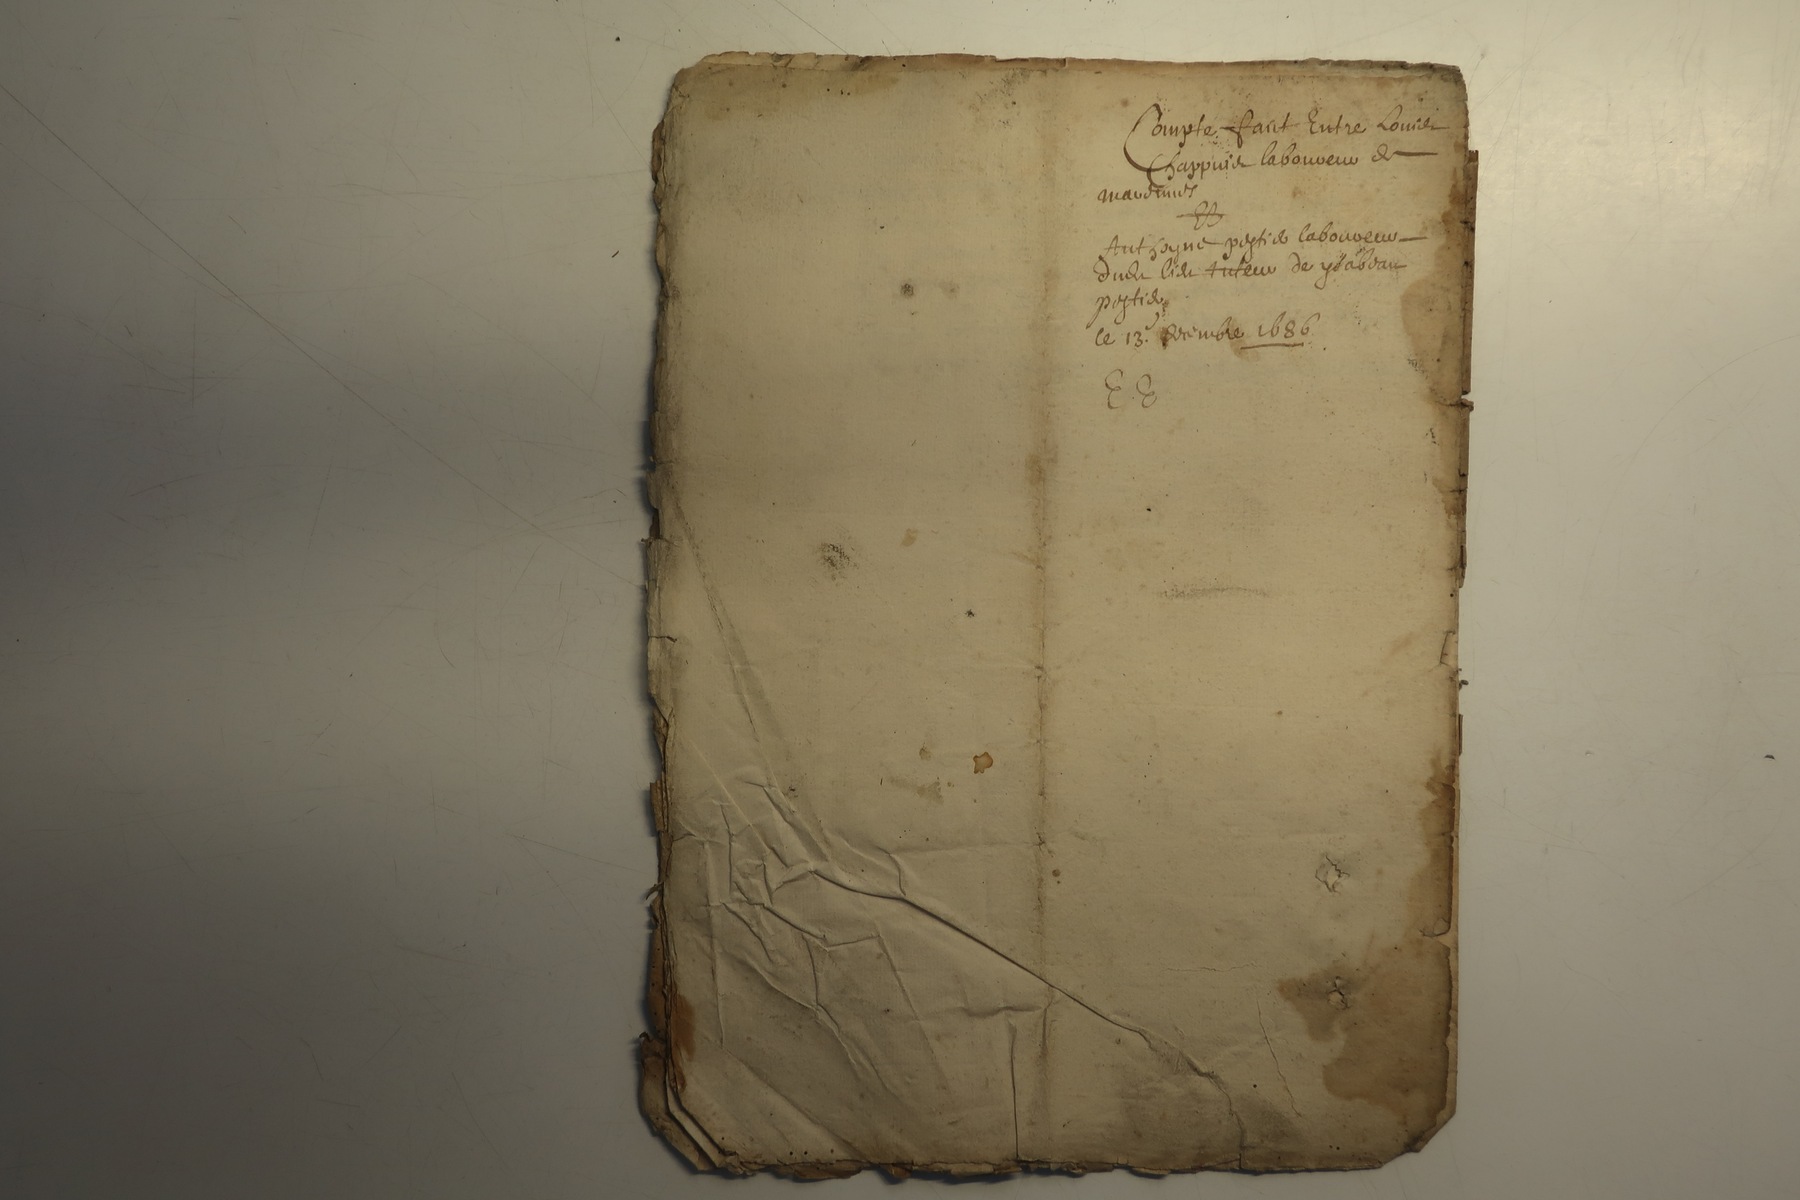 Compte faict Entre Louis
Chappuis laboureur de
Et
Anthoyne petit laboureur
dudit lieu tuteur de ysabeau
petit
le 13e decembre 1686